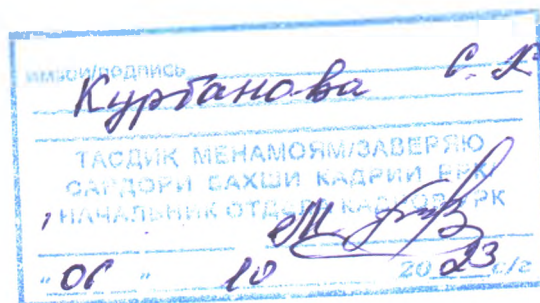 ИМЗОИ/ПОДПИСЬ
Курбанова С.К
ТАСДИК МЕНАМОЯМ/ЗАВЕРЯЮ
САРДОРИ БАХШИ КАДРИИ
НАЧАЛЬНИК ОТДЕЛА КАДРОВ
"06" 10 2023 с/г